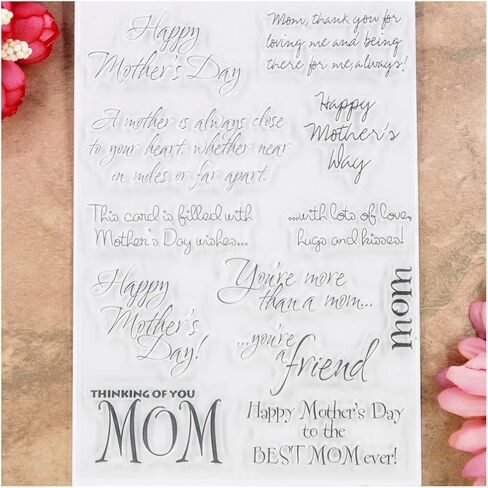 Happy
Mother's Day
Mom, thank you for
loving me and being
there for me, always!
A mother is always close
to your heart, whether near
in miles or far apart.
Happy
Mother's
Way
This card is filled with
Mother's Day wishes...
...with lots of love,
hugs and kisses!
Happy
Mother's
Day!
You're more
than a mom...
mom
...you're
a friend
THINKING OF YOU
MOM
Happy Mother's Day
to the
BEST MOM ever!